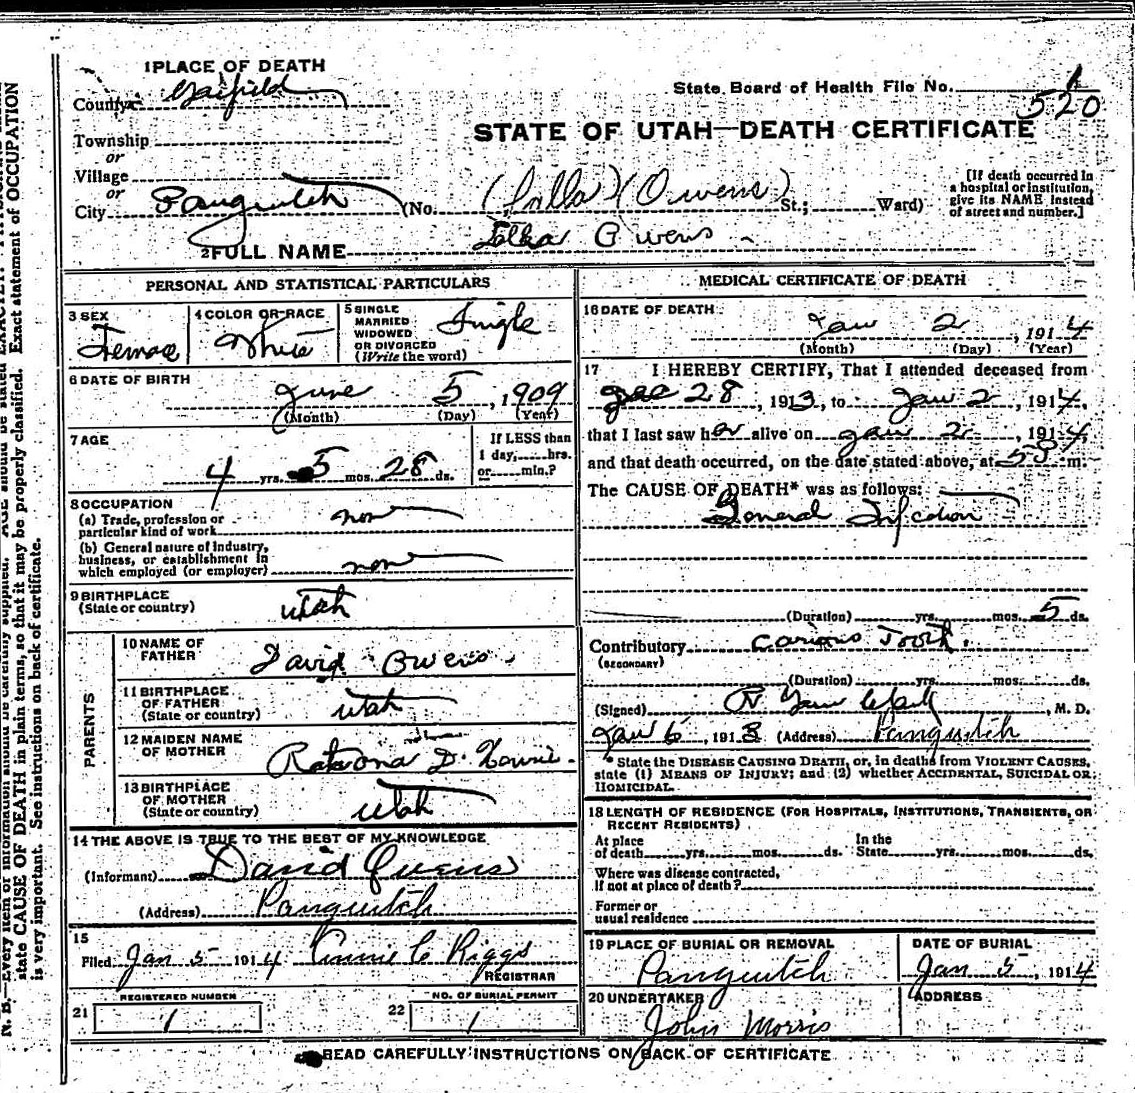 1 PLACE OF DEATH
County Garfield
State Board of Health File No. 1
520
Township
or
Village
or
City Panguitch (No. St.; Ward)
(Owens)
STATE OF UTAH—DEATH CERTIFICATE
[If death occurred in
a hospital or institution,
give its NAME instead
of street and number.]
2 FULL NAME Owens
PERSONAL AND STATISTICAL PARTICULARS
3 SEX
Female
4 COLOR OR RACE
White
5 SINGLE
MARRIED
WIDOWED
OR DIVORCED
(Write the word)
Single
6 DATE OF BIRTH
June 5, 1909
(Month) (Day) (Year)
7 AGE
4 yrs. 5 mos. 28 ds.
If LESS than
1 day, hrs.
or min.?
8 OCCUPATION
(a) Trade, profession or
particular kind of work non
(b) General nature of industry,
business, or establishment in
which employed (or employer) non
9 BIRTHPLACE
(State or country) Utah
PARENTS
10 NAME OF
FATHER David Owens
11 BIRTHPLACE
OF FATHER
(State or country) Utah
12 MAIDEN NAME
OF MOTHER D.
13 BIRTHPLACE
OF MOTHER
(State or country) Utah
14 THE ABOVE IS TRUE TO THE BEST OF MY KNOWLEDGE
(Informant) David Owens
(Address) Panguitch
15
Filed Jan 5 1914 Annie C Riggs
REGISTRAR
21 REGISTERED NUMBER
1
22 NO. OF BURIAL PERMIT
1
MEDICAL CERTIFICATE OF DEATH
16 DATE OF DEATH
Jan 2, 1914
(Month) (Day) (Year)
17 I HEREBY CERTIFY, That I attended deceased from
Dec 28, 1913, to Jan 2, 1914,
that I last saw her alive on Jan 2, 1914
and that death occurred, on the date stated above, at m.
The CAUSE OF DEATH* was as follows:
General Infection
(Duration) yrs. mos. 5 ds.
Contributory Carious Tooth.
(SECONDARY)
(Duration) yrs. mos. ds.
(Signed) R , M. D.
Jan 6, 1913 (Address) Panguitch
* State the DISEASE CAUSING DEATH, or, in deaths from VIOLENT CAUSES,
state (1) MEANS OF INJURY; and (2) whether ACCIDENTAL, SUICIDAL OR
HOMICIDAL.
18 LENGTH OF RESIDENCE (FOR HOSPITALS, INSTITUTIONS, TRANSIENTS, OR
RECENT RESIDENTS)
At place
of death yrs. mos. ds.
In the
State yrs. mos. ds.
Where was disease contracted,
If not at place of death?
Former or
usual residence
19 PLACE OF BURIAL OR REMOVAL
Panguitch
DATE OF BURIAL
Jan 5, 1914
20 UNDERTAKER
John Morris
ADDRESS
READ CAREFULLY INSTRUCTIONS ON BACK OF CERTIFICATE
N. B.—Every item of information should be carefully supplied. AGE should be stated EXACTLY.
state CAUSE OF DEATH in plain terms, so that it may be properly classified. Exact statement of OCCUPATION
is very important. See instructions on back of certificate.